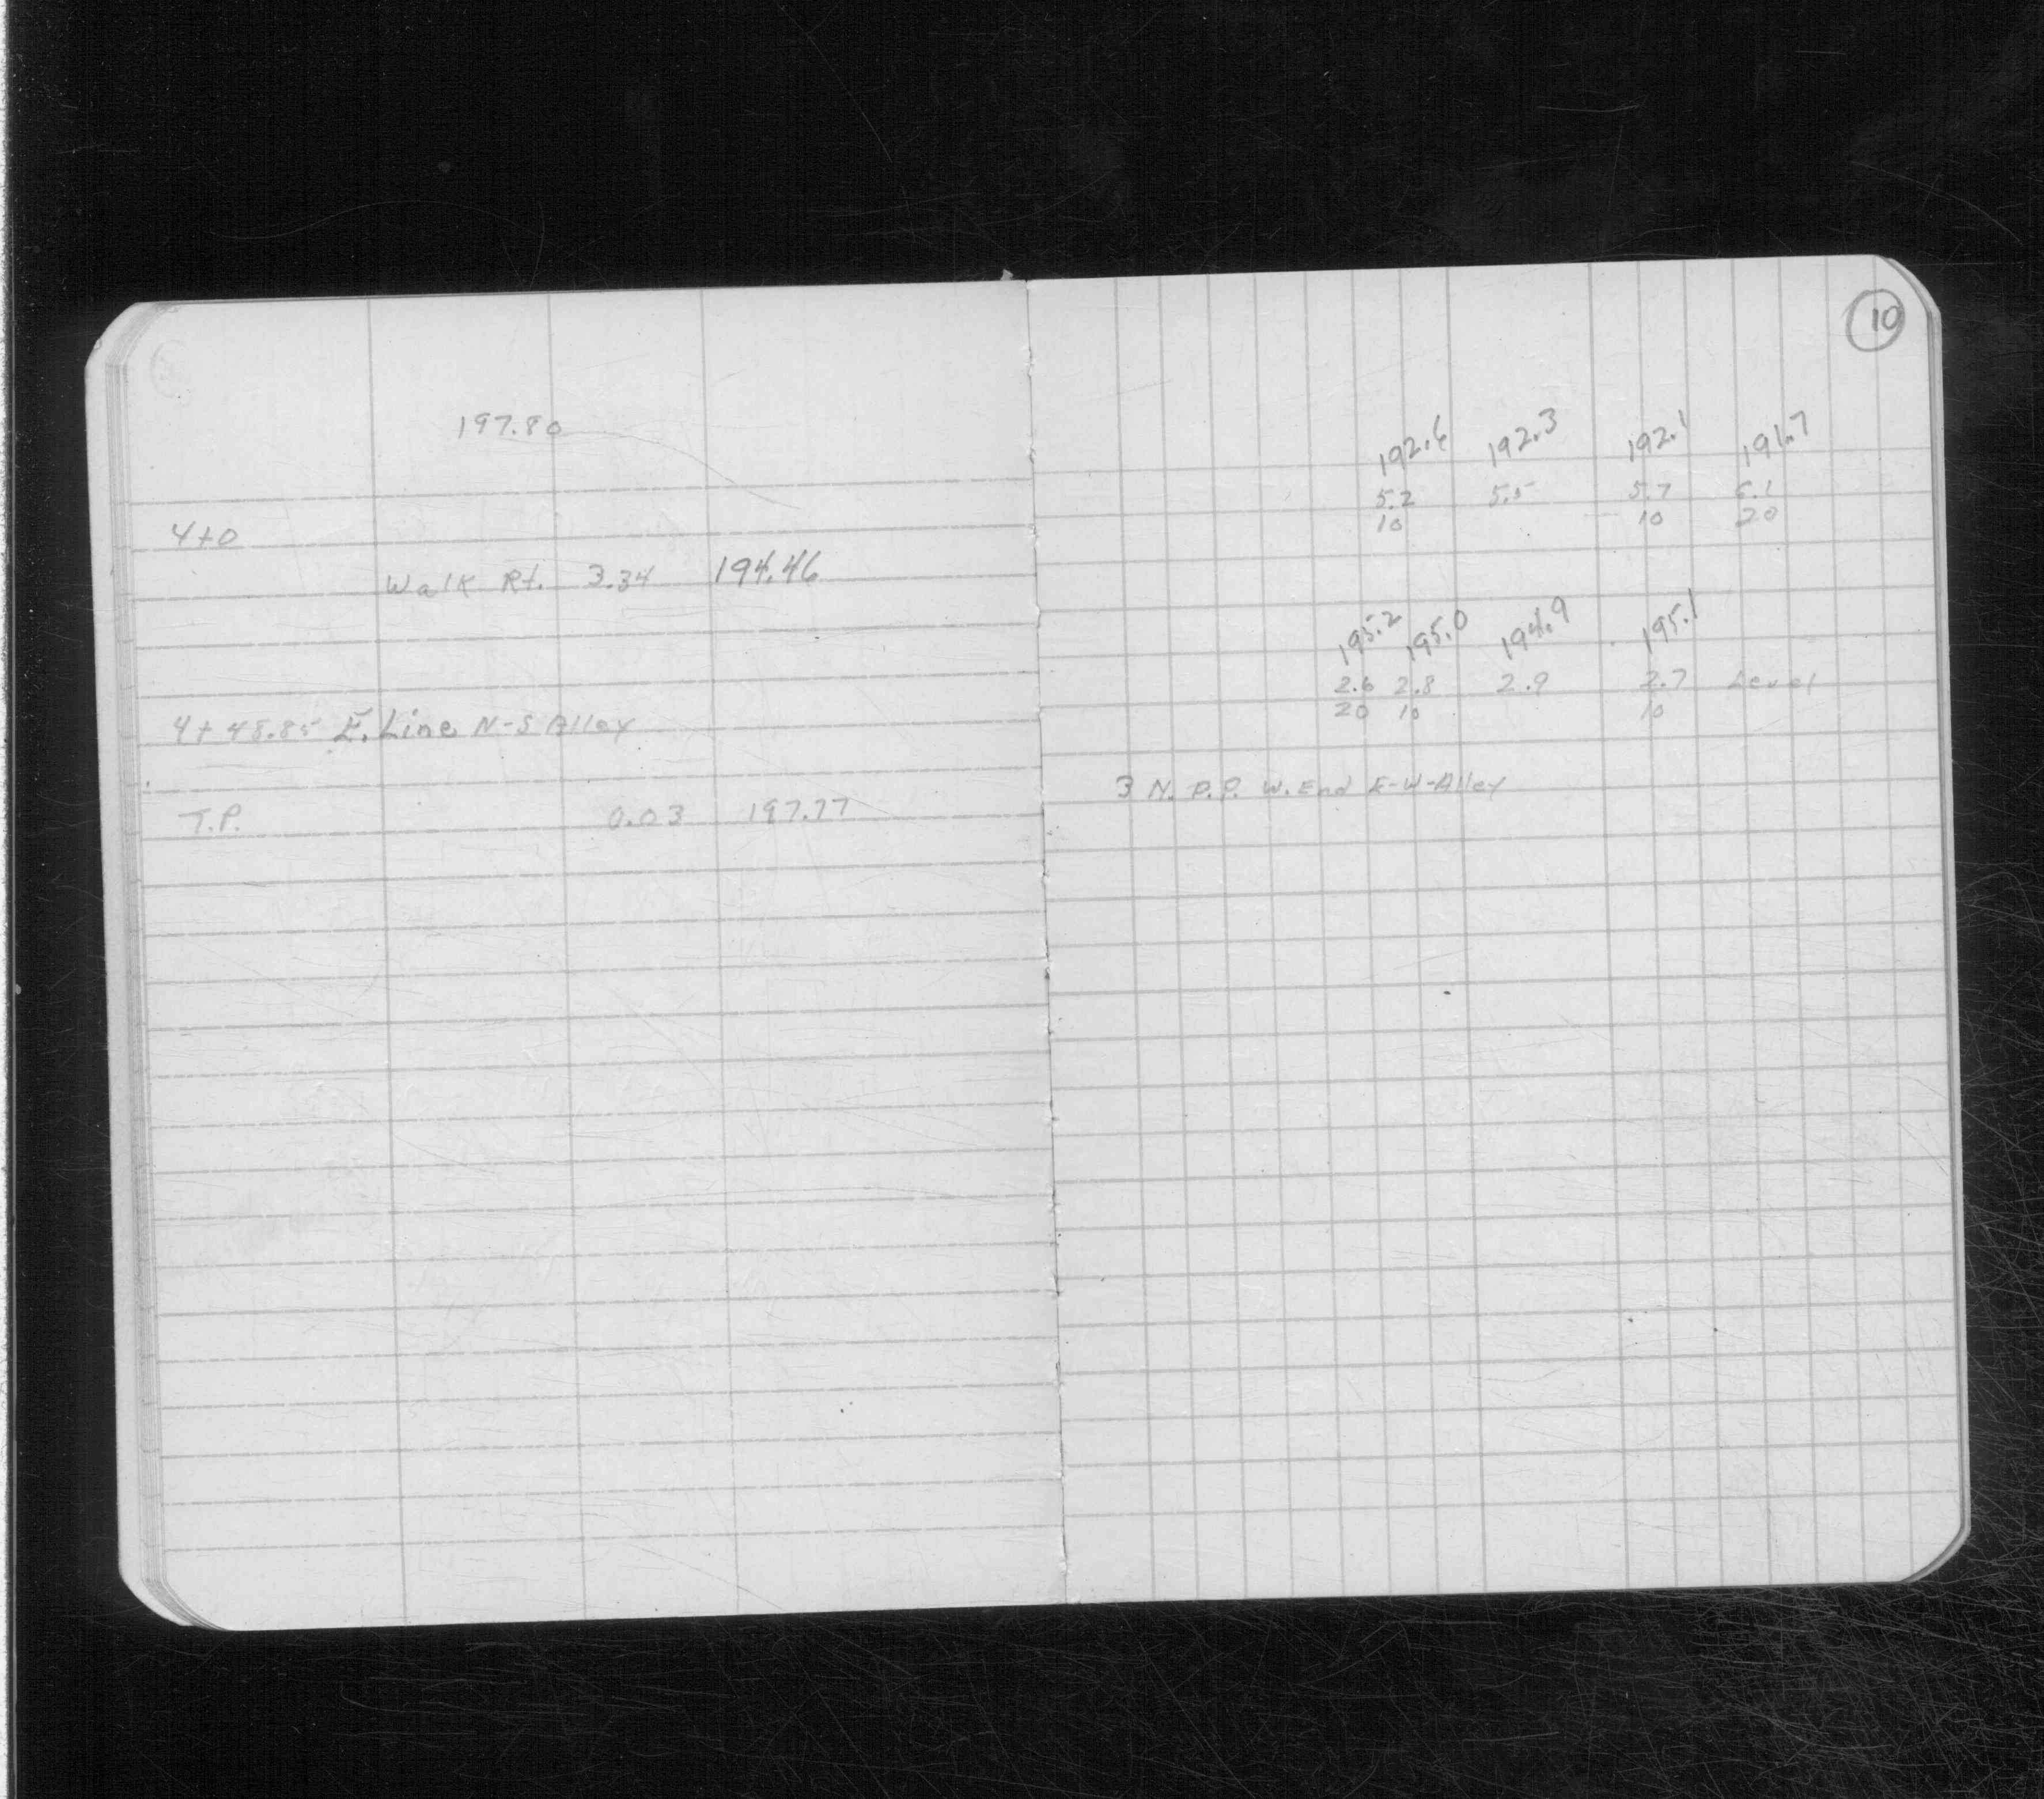 197.80
4+0
Walk Rt. 3.34 194.46
4+48.85 E. Line N-S Alley
T.P. 0.03 197.77
10
192.6 192.3 192.1 191.7
5.2 5.5 5.7 6.1
10 10 20
195.2 195.0 194.9 195.1
2.6 2.8 2.9 2.7 Level
20 10 10
3 N. P.P. W. End E-W-Alley